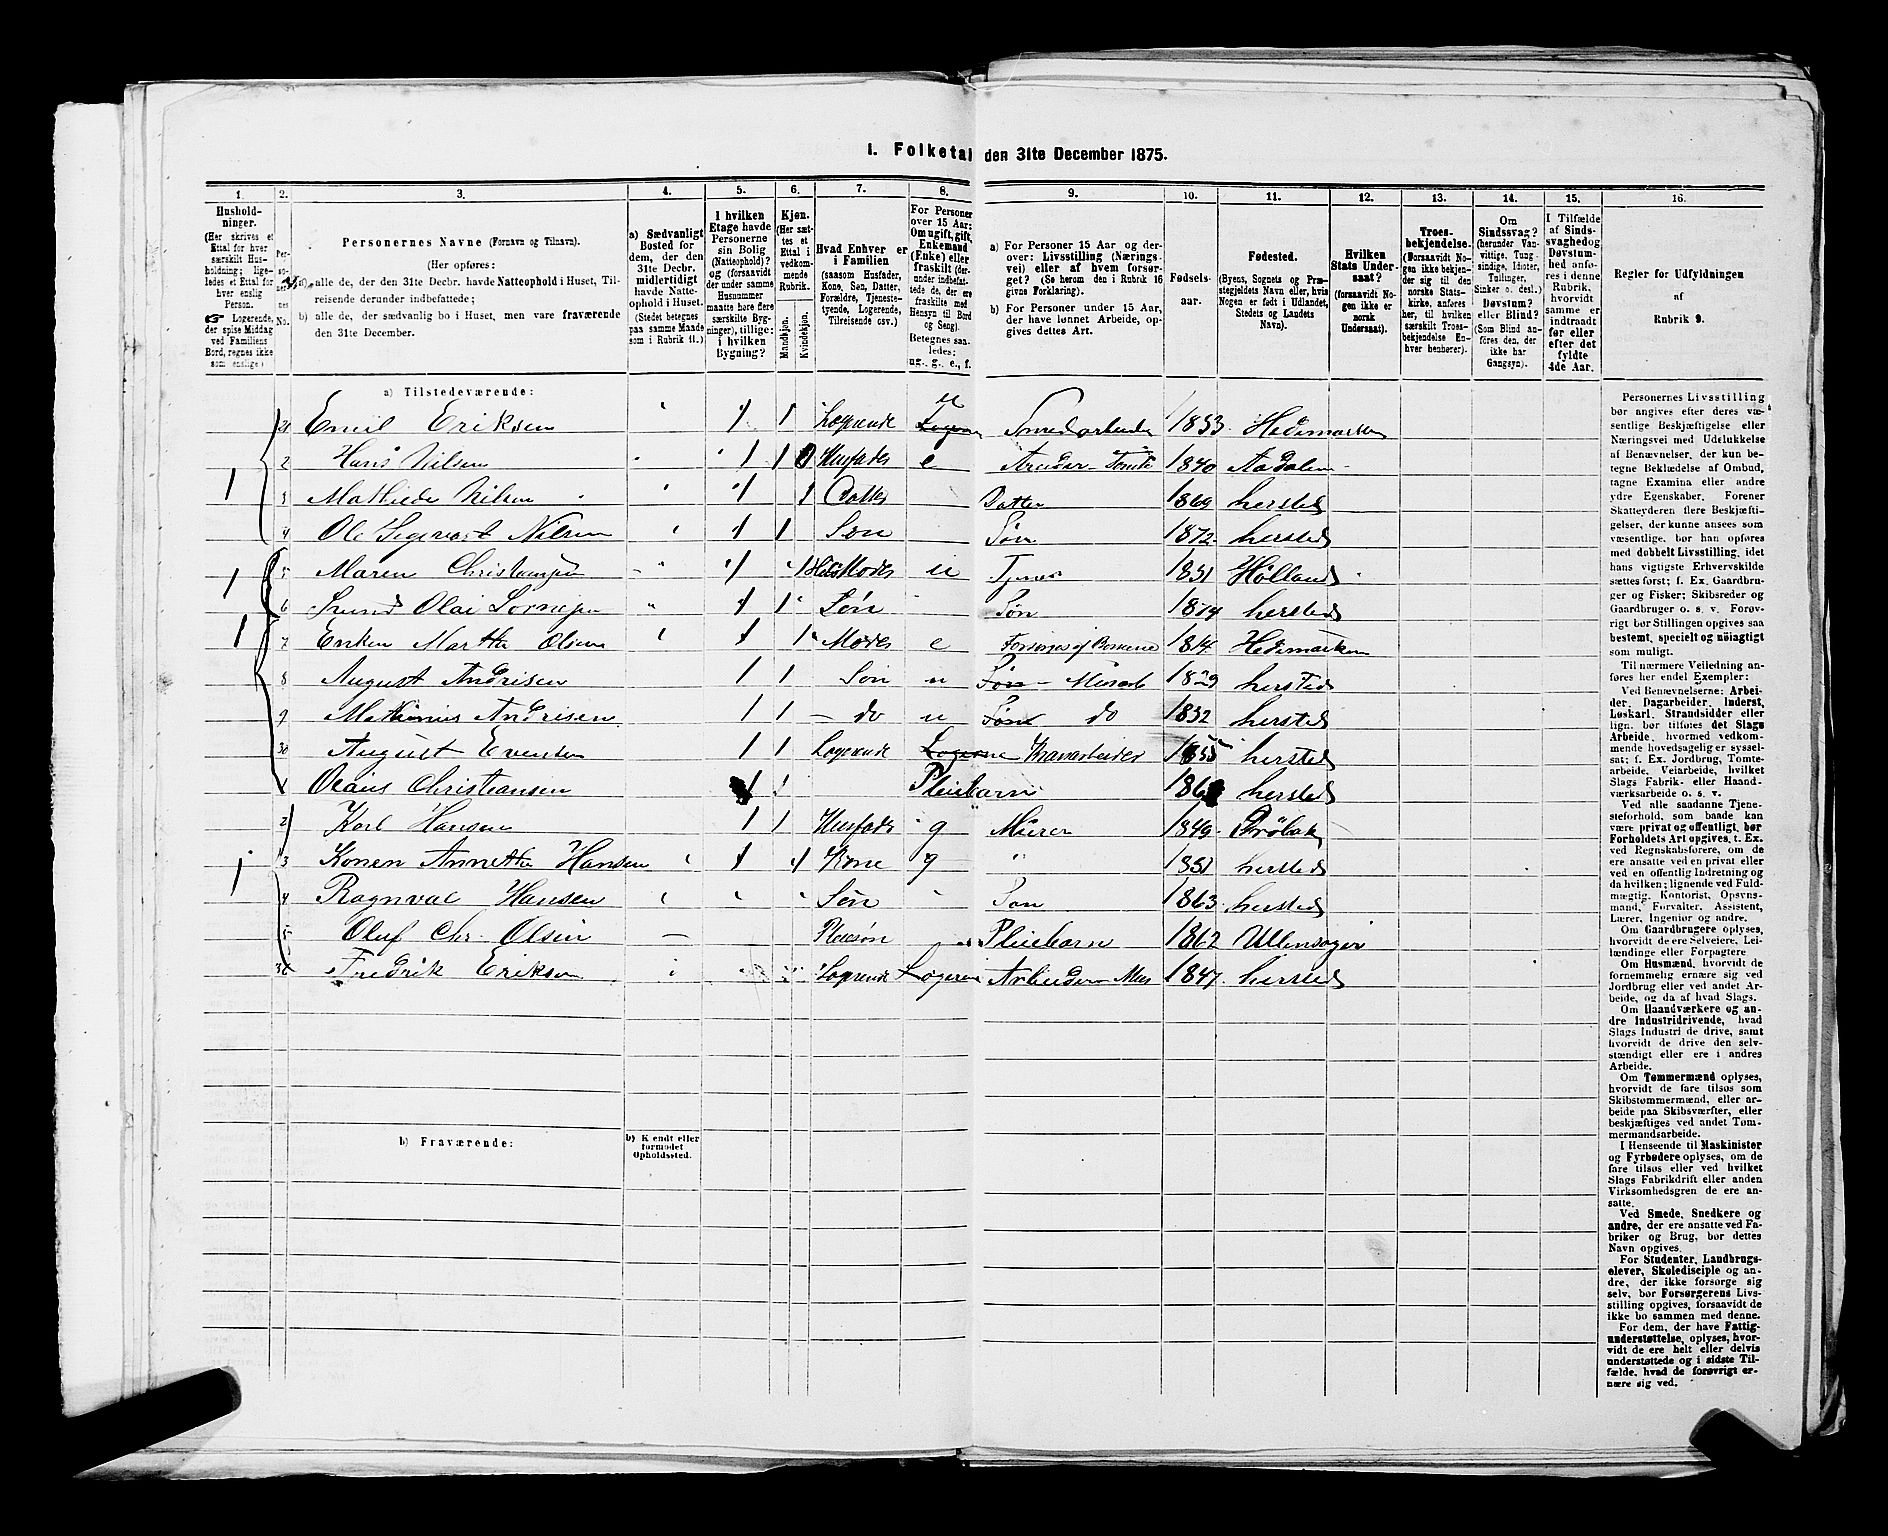 I. Folketal den 31te December 1875.
1. 2. 3. 4. 5. 6. 7. 8. 9. 10. 11. 12. 13. 14. 15. 16.
Husholdninger.
(Her skrives et Ettal for hver særskilt Husholdning; ligeledes et Ettal for hver enslig Person.
Logerende, der spise Middag ved Familiens Bord, regnes ikke som enslige.)
Personernes No.
Personernes Navne (Fornavn og Tilnavn).
(Her opføres:
a) alle de, der den 31te Decbr. havde Natteophold i Huset, Tilreisende derunder indbefattede;
b) alle de, der sædvanlig bo i Huset, men vare fraværende den 31te December.
a) Sædvanligt Bosted for dem, der den 31te Decbr. midlertidigt havde Natteophold i Huset.
(Stedet betegnes paa samme Maade som i Rubrik 11.)
I hvilken Etage havde Personerne sin Bolig (Natteophold)? og (forsaavidt der under samme Husnummer maatte høre flere særskilte Bygninger), tillige: i hvilken Bygning?
Kjøn.
(Her sættes et Ettal i vedkommende Rubrik.
Mandkjøn.
Kvindekjøn.
Hvad Enhver er i Familien
(saasom Husfader, Kone, Søn, Datter, Forældre, Tjenestetyende, Logerende, Tilreisende osv.)
For Personer over 15 Aar: Om ugift, gift, Enkemand (Enke) eller fraskilt (derunder indbefattede de, der ere fraskilte med Hensyn til Bord og Seng).
Betegnes saaledes: ug., g., e., f.
a) For Personer 15 Aar og derover: Livsstilling (Næringsvei) eller af hvem forsørget? (Se herom den i Rubrik 16 givne Forklaring).
b) For Personer under 15 Aar, der have lønnet Arbeide, opgives dettes Art.
Fødselsaar.
Fødested.
(Byens, Sognets og Præstegjeldets Navn eller, hvis Nogen er født i Udlandet, Stedets og Landets Navn).
Hvilken Stats Undersaat?
(forsaavidt Nogen ikke er norsk Undersaat).
Troesbekjendelse.
(Forsaavidt Nogen ikke bekjender sig til den norske Statskirke, anføres her, til hvilken særskilt Troesbekjendelse Enhver henhører).
Om Sindssvag? (herunder Vanvittige, Tungsindige, Idioter, Tullinger, Sinker o. desl.)
Døvstum? eller Blind?
(Som Blind anføres den, der ikke har Gangsyn).
I Tilfælde af Sindssvaghed og Døvstumhed anføres i denne Rubrik, hvorvidt samme er indtraadt før eller efter det fyldte 4de Aar.
Regler for Udfyldningen
af
Rubrik 9.
a) Tilstedeværende:
21 Emil Eriksen 1 1 Logerende u Smedarbeider 1853 Hedemarken
2 Hans Nilsen 1 1 Husfader e Arbeider Tomte 1840 Aadalen
1 3 Mathilde Nilsen 1 1 Datter Datter 1869 hersteds
4 Ole Segevart Nilsen 1 1 Søn Søn 1872 hersteds
1 5 Maren 1 1 Moder u 1851 Hølland
6 Olai 1 1 Søn Søn 1874 hersteds
1 7 Enken Marthe Olsen 1 1 Moder e Forsørges af Børnene 1814 Hedemarken
8 August Andrisen 1 1 Søn u Søn 1829 hersteds
9 Mathinius Andrisen 1 1 do u Søn do 1832 hersteds
30 August Evensen 1 1 Logerende 1855 hersteds
1 Olaus Christiansen 1 1 Pleiebarn hersteds
2 Karl Hansen 1 1 Husfader g Murer 1849 Drøbak
1 3 Konen Annette Hansen 1 1 Kone g 1851 hersteds
4 Ragnval Hansen Søn Søn 1863 hersteds
5 Oluf Chr. Olsen Pleiesøn Pleiebarn 1862 Ullensager
36 Fredrik Eriksen Logerende Logerende Arbeider 1847 hersteds
b) Fraværende:
b) Kjendt eller formodet Opholdssted.
Personernes Livsstilling
bør angives efter deres væsentlige
Beskjæftigelse eller
Næringsvei med Udelukkelse
af Benævnelser, der kun betegne
Beklædelse af Ombud,
tagne Examina eller andre
ydre Egenskaber. Forener
Skatteyderen flere Beskjæftigelser,
der kunne ansees som
væsentlige, bør han opføres
med dobbelt Livsstilling, idet
hans vigtigste Erhvervskilde
sættes først; f. Ex. Gaardbruger
og Fisker; Skibsreder og
Gaardbruger o. s. v. Forøvrigt
bør Stillingen opgives saa
bestemt, specielt og nøiagtigt
som muligt.
Til nærmere Veiledning anføres
her endel Exempler:
Ved Benævnelserne: Arbeider,
Dagarbeider, Inderst,
Løskarl, Strandsidder eller
lign. bør tilføres det Slags
Arbeide, hvormed vedkommende
hovedsagelig er sysselsat;
f. Ex. Jordbrug, Tomtearbeide,
Veiarbeide, hvilket
Slags Fabrik- eller Haandværksarbeide
o. s. v.
Ved alle saadanne Tjenesteforhold,
som baade kan
være privat og offentligt, bør
Forholdets Art opgives, t. Ex.
ved Regnskabsførere, om de
ere ansatte ved en privat eller
ved en offentlig Indretning og
da hvilken; lignende ved Fuldmægtig,
Kontorist, Opsynsmand,
Forvalter, Assistent,
Lærer, Ingeniør og andre.
Om Gaardbrugere opgives,
hvorvidt de ere Selveiere, Leilændinge
eller Forpagtere.
Om Husmænd, hvorvidt de
fornemmelig ernære sig ved
Jordbrug eller ved andet Arbeide,
og da af hvad Slags.
Om Haandværkere og andre
Industridrivende, hvad
Slags Industri de drive, samt
hvorvidt de drive den selvstændigt
eller ere i andres
Arbeide.
Om Tømmermænd oplyses,
hvorvidt de fare tilsøs som
Skibstømmermænd, eller arbeide
paa Skibsværfter, eller
beskjæftiges ved andet Tømmermandsarbeide.
I Henseende til Maskinister
og Fyrbødere oplyses, om de
fare tilsøs eller ved hvilket
Slags Fabrikdrift eller anden
Virksomhedsgren de ere ansatte.
Ved Smede, Snedkere og
andre, der ere ansatte ved Fabriker
og Brug, bør dettes
Navn opgives.
For Studenter, Landbrugselever,
Skoledisciple og andre,
der ikke forsørge sig
selv, bør Forsørgerens Livsstilling
opgives, forsaavidt de
ikke bo sammen med denne.
For dem, der have Fattigunderstøttelse,
oplyses, hvorvidt
de ere helt eller delvis
understøttede og i sidste Tilfælde,
hvad de forøvrigt ernære
sig ved.